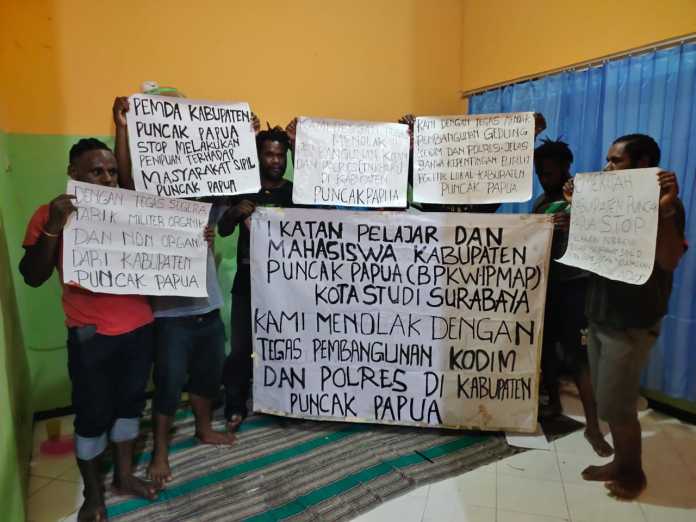 PEMDA KABUPATEN
PUNCAK PAPUA
STOP MELAKUKAN
PENIPUAN TERHADAP
MASYARAKAT SIPIL
PUNCAK PAPUA
MENOLAK
DI KABUPATEN
PUNCAK PAPUA
KAMI DENGAN TEGAS MENOLAK
PEMBANGUNAN GEDUNG
KODIM DAN POLRES. JELAS
HANYA KEPENTINGAN
POLITIK LOKAL KABUPATEN
PUNCAK PAPUA
DENGAN TEGAS SUGERA
TARIK MILITER ORGANIK
DAN NON ORGANI
DARI KABUPATEN
PUNCAK PAPUA
KABUPATEN PUNCAK
STOP
IKATAN PELAJAR DAN
MAHASISWA KABUPATEN
PUNCAK PAPUA (BPKWIPMAP)
KOTA STUDI SURABAYA
KAMI MENOLAK DENGAN
TEGAS PEMBANGUNAN KODIM
DAN POLRES DI KABUPATEN
PUNCAK PAPUA